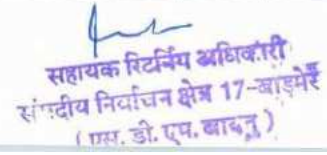 सहायक रिटर्निंग अधिकारी
संसदीय निर्वाचन क्षेत्र 17-बाड़मेर
( एस. डी. एम. बायतु )